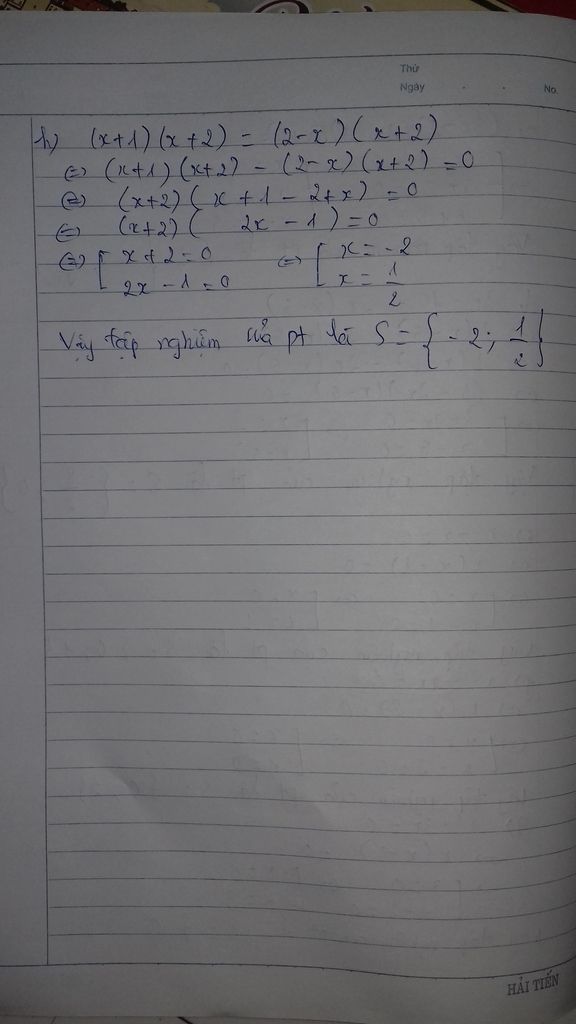 Thứ
Ngày . . No.
h) (x+1)(x+2) = (2-x)(x+2)
⇔ (x+1)(x+2) - (2-x)(x+2) = 0
⇔ (x+2)(x+1-2+x) = 0
⇔ (x+2)( 2x-1) = 0
⇔ [ x+2=0 ⇔ [ x=-2
2x-1=0 x= 1/2
Vậy tập nghiệm của pt là S={-2; 1/2}
HẢI TIẾN